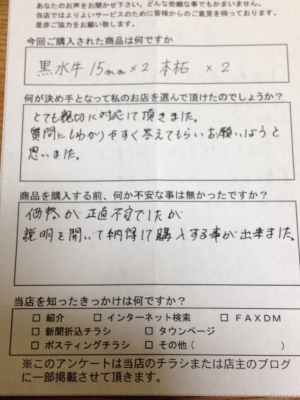 あなたのお声をお聞かせ下さい。どんな些細な事でもかまいません。
当店ではよりよいサービスのために皆様からのご意見を伺っております。
是非ご協力をお願い致します。
今回ご購入された商品は何ですか
黒水牛 15mm×2 本柘 ×2
何が決め手となって私のお店を選んで頂けたのでしょうか?
とても親切に対応して頂きました。
質問にもわかりやすく答えてもらいお願いしようと
思いました。
商品を購入する前、何か不安な事は無かったですか?
価格が正直不安でしたが
説明を聞いて納得して購入する事が出来ました。
当店を知ったきっかけは何ですか?
□ 紹介 □ インターネット検索 □ FAXDM
□ 新聞折込チラシ □ タウンページ
□ ポスティングチラシ □ その他( )
※このアンケートは当店のチラシまたは店主のブログ
に一部掲載させて頂きます。